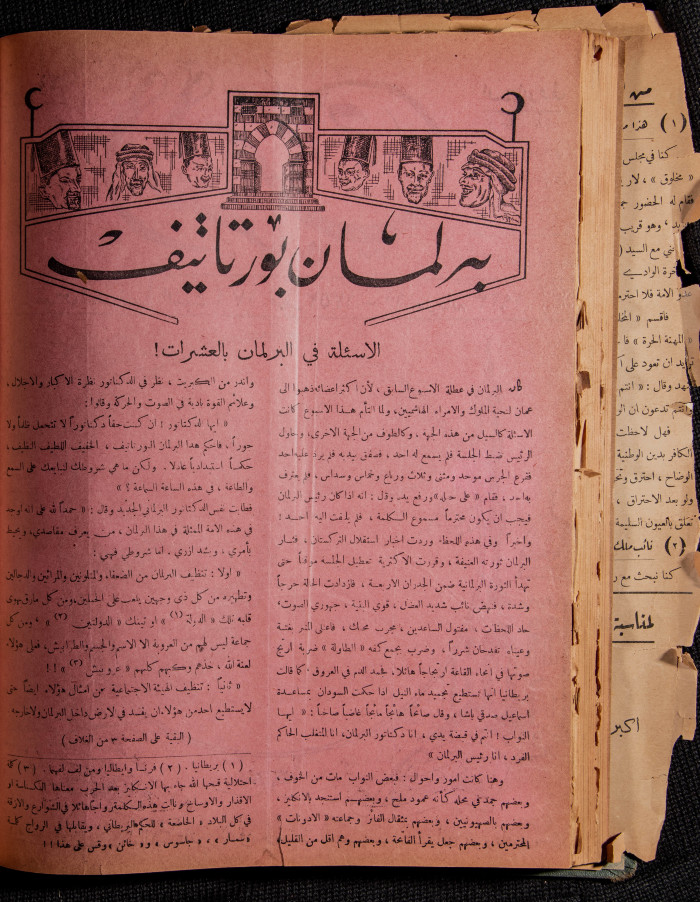 برلمان بورتاتيف
الاسئلة في البرلمان بالعشرات !
كان البرلمان في عطلة الاسبوع السابق ، لأن أكثر اعضائه ذهبوا الى
عمان لتحية الملوك والامراء الهاشميين ، ولما التأم هذا الاسبوع كانت
الاسئلة كالسيل من هذه الجهة ، وكالطوف من الجهة الاخرى، وحاول
الرئيس ضبط الجلسة فلم يسمع له احد ، فصفق بيديه فلم يرد عليه احد
فقرع الجرس موحد ومثنى وثلاث ورباع وخماس وسداس ، فلم يعترف
به احد ، فقام « على حيله » ورفع يديه وقال : انه اذا كان رئيس البرلمان
فيجب ان يكون محترماً مسموع الكلمة ، فلم يلتفت اليه احد !
واخيراً وفي هذه اللحظة وردت اخبار استقلال التركستان ، فثار
البرلمان ثورته العنيفة ، وقررت الاكثرية تعطيل الجلسة موقتاً حتى
تهدأ الثورة البرلمانية ضمن الجدران الاربعة ، فازدادت الحالة حرجاً
وشدة ، فنهض نائب شديد العضل ، قوي البنية ، جهوري الصوت،
حاد اللحظات ، مفتول الساعدين ، مجرب محنك ، فاعتلى المنبر بغتة
وعيناه تقدحان شرراً ، وضرب بجمع كفه « الطاولة » ضربة ارتج
صوتها في انحاء القاعة ارتجاجاً هائلا، فجمد الدم في العروق كما قالت
بريطانيا انها تستطيع تجميد ماء النيل اذا حكت السودان بمساعدة
اسماعيل صدقي باشا ، وقال صائحاً هائجاً مائجاً غاضباً صاخباً : « ايها
النواب ! انتم في قبضة يدي ، انا دكتاتور البرلمان، انا المتغلب الحاكم
الفرد، انا رئيس البرلمان »
وهنا كانت امور واحوال : فبعض النواب مات من الخوف ،
وبعضهم جمد في محله كأنه عمود ملح ، وبعضهم استنجد بالانكليز ،
وبعضهم بالصهيونيين ، وبعضهم بمثقال الفائز وجماعته « الادونات »
المحترمين ، وبعضهم جعل يقرأ الفاتحة ، وبعضهم وهم اقل من القليل،
واندر من الكبريت ، نظر في الدكتاتور نظرة الاكبار والاجلال ،
وعلائم القوة بادية في الصوت والحركة وقالوا :
« ايها الدكتاتور ! ان كنت حقاً دكتاتوراً لا تتحمل ظلماً ولا
جوراً ، فاحكم هذا البرلمان البورتاتيف ، الخفيف اللطيف النظيف،
حكماً استبدادياً عادلا . ولكن ما هي شروطك لنبايعك على السمع
والطاعة ، في هذه الساعة السماعة ؟ »
فطابت نفس الدكتاتور البرلماني الجديد وقال : « حمداً لله على انه اوجد
في هذه الامة الممثلة في هذا البرلمان ، من يعرف مقاصدي، ويحيط
بأمري ، وشد ازري ، اما شروطي فهي :
« اولا : تنظيف البرلمان من الضعفاء والمتلونين والمرائين والدجالين
وتطهيره من كل ذي وجهين يلعب على الحبلين، ومن كل مارق يهوى
قلبه تلك « الدولة (١) » او تينك « الدولتين (٢) » ، ومن كل
جماعة ليس لهم من العروبة الا الاسم والجنس والطرابيش، فعلى هؤلاء
لعنة الله ، خذهم وكبهم كلهم « عونبش (٣) » !!
« ثانياً : تنظيف الهيئة الاجتماعية من امثال هؤلاء ايضاً حتى
لا يستطيع احد من هؤلاء ان يفسد في الارض داخل البرلمان ولا خارجه
(البقية على الصفحة ٣ من الغلاف)
(١) بريطانيا . (٢) فرنسا وايطاليا ومن لف لفهما . (٣) كلمة
احتلالية قبحها الله جاء بها الانكليز بعد الحرب معناها الكناسة او
الاقذار والاوساخ ونالت هذه الكلمة رواجاً هائلا في الشوارع والازقة
في كل البلاد « الخاضعة » للحكم البريطاني ، ويقابلها في الرواج كلمة
« سمسار » ، « جاسوس » و « خائن » وقس على هذا !!
(١) هذا
كنا في مجلس
« مخلوق » ،
فقام له الحضور
وهو قريب
مع السيد
عدو الامة فلا
فاقسم «
« المهنة الحرة »
ان تعود على
وقال : « انتم
وانتم تدعون
فهل لاحظت
الكافر بدين الوطنية
الوضاح ، احترق
ولو بعد الاحتراق ،
تعلق بالعيون السليمة
(٢) نائب ملك
كنا نبحث مع
لمناسبة